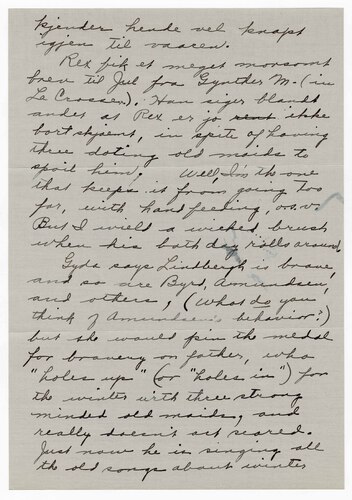 kjender hende vel knapt
igjen til vaaren.
Rex fik et meget morsomt
brev til Jul fra Gynther M. (in
La Crosse). Han siger blandt
andet at Rex er jo rent ikke
bortskjæmt, in spite of having
three doting old maids to
spoil him, Well I'm the one
that keeps it from going too
far, with hand feeding, o.s.v.
But I wield a wicked brush
when his bath day rolls around.
Gyda says Lindbergh is brave,
and so are Byrd, Amundsen,
and others, (What do you
think of Amundsen's behavior?)
but she would pin the medal
for bravery on father, who
"holes up" (or "holes in") for
the winter with three strong
minded old maids, and
really doesn't act scared.
Just now he is singing all
the old songs about winter